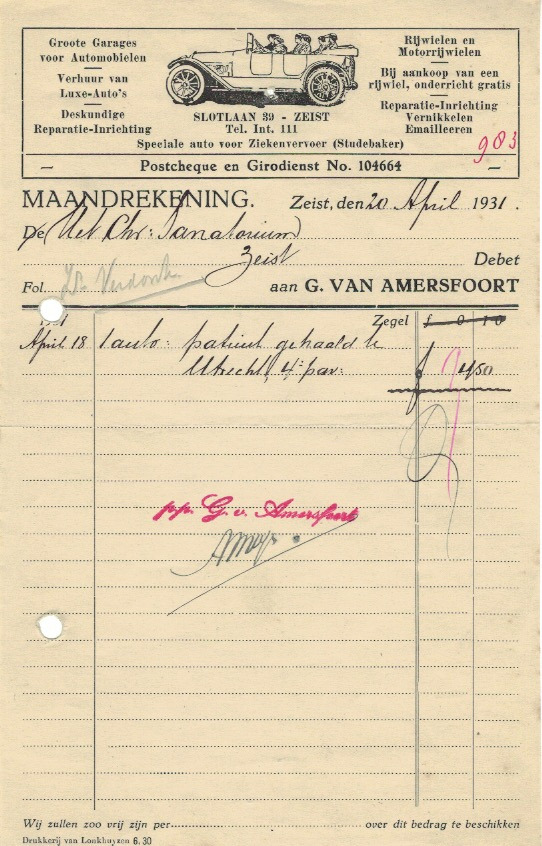 Groote Garages
voor Automobielen
Verhuur van
Luxe-Auto's
Deskundige
Reparatie-Inrichting
SLOTLAAN 39 - ZEIST
Tel. Int. 111
Rijwielen en
Motorrijwielen
Bij aankoop van een
rijwiel, onderricht gratis
Reparatie-Inrichting
Vernikkelen
Emailleeren
Speciale auto voor Ziekenvervoer (Studebaker)
983
Postcheque en Girodienst No. 104664
MAANDREKENING. Zeist, den 20 April 1931.
De Het Chr: Sanatorium
Zeist Debet
Fol. aan G. VAN AMERSFOORT
Zegel f 0 10
April 18 1 auto: patient gehaald te
Utrecht, 4 f 4/50
pp. G. v. Amersfoort
Wij zullen zoo vrij zijn per over dit bedrag te beschikken
Drukkerij van Lonkhuyzen 6.30